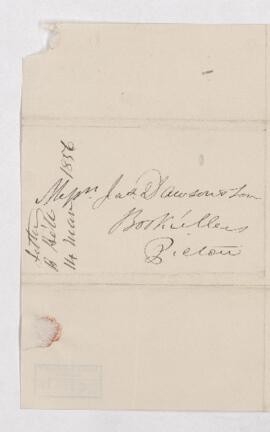 Messrs. Jas. Dawson & Son
Booksellers
Pictou
letter
14 March 1856